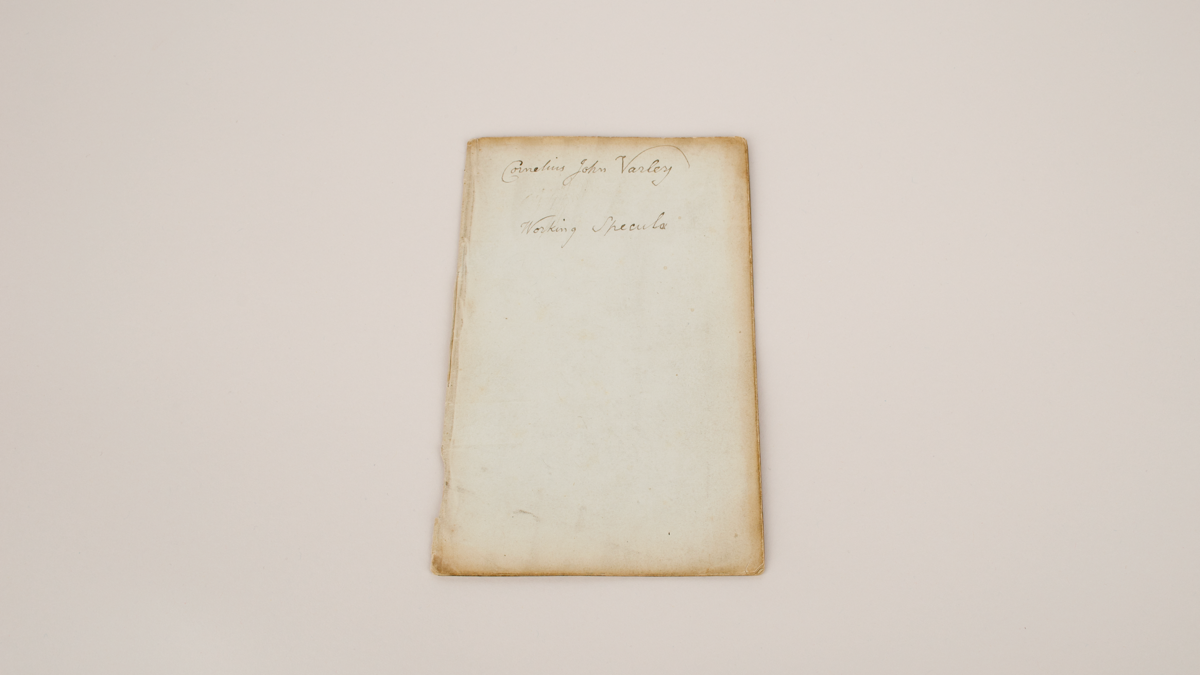 Cornelius John Varley
Working Specula